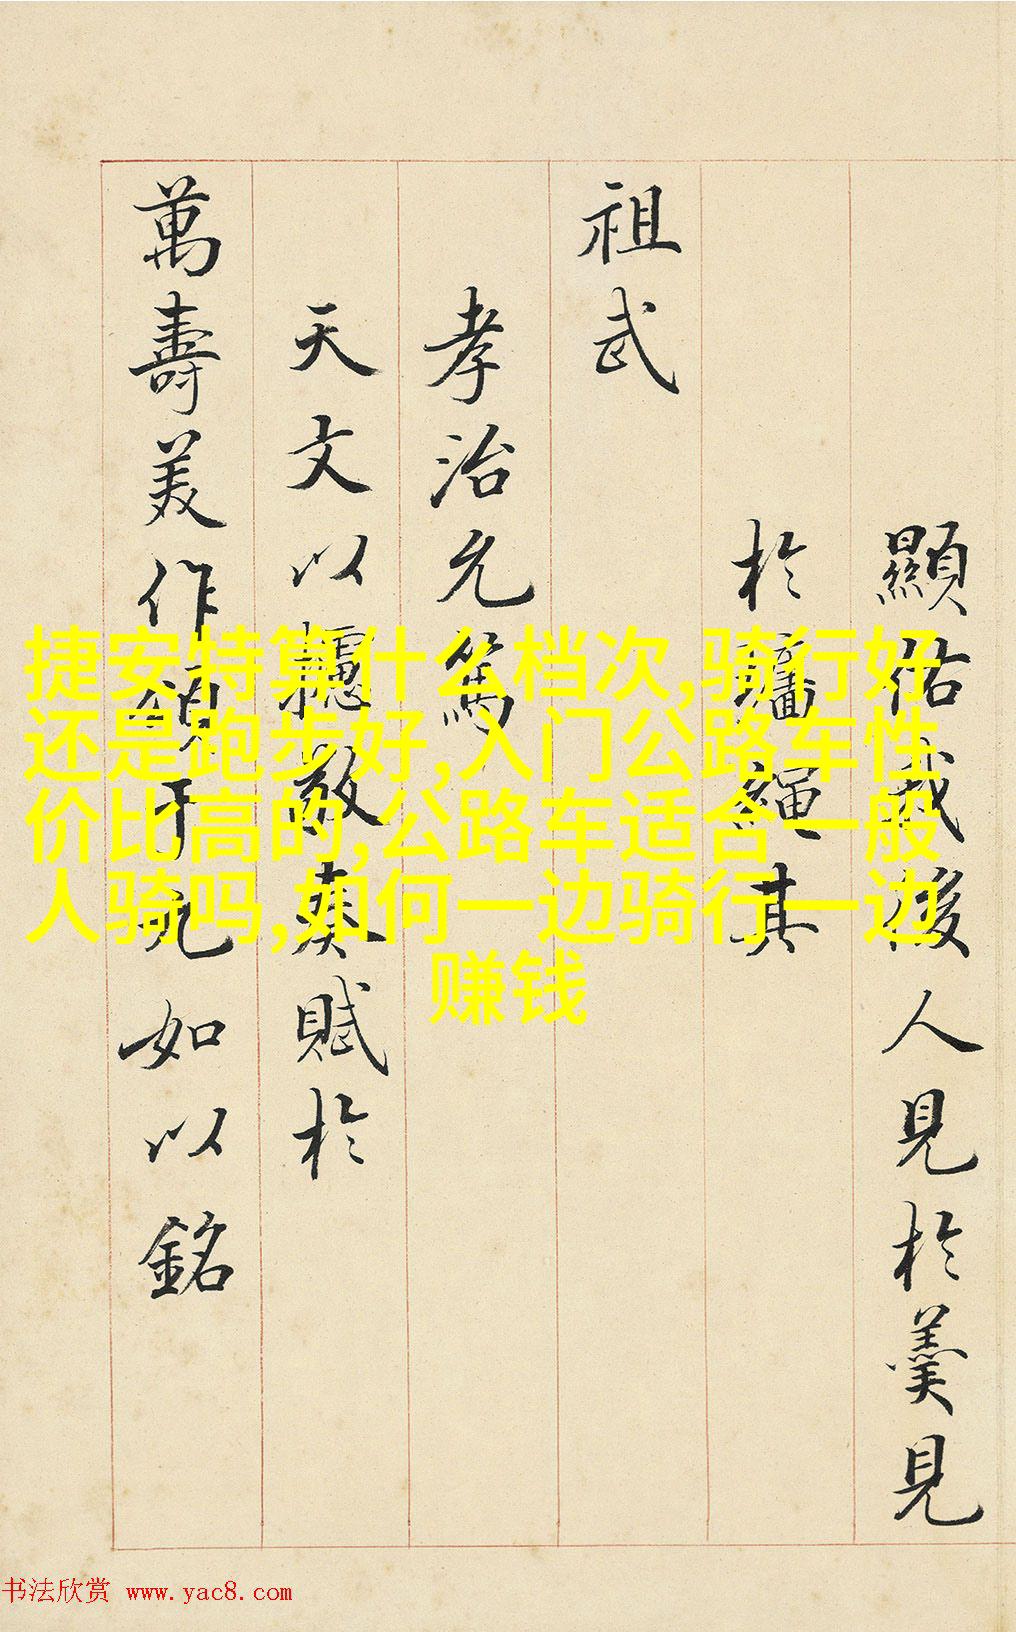 顯佑我後人見於羹見
於牆繩其
祖武
孝治允篤
天文以攄敬奏賦於
萬壽美作頌于兄如以銘
捷安特算什么档次,骑行好
还是跑步好,入门公路车性
价比高的,公路车适合一般
人骑吗,如何一边骑行一边
赚钱
书法欣赏 www.yac8.com